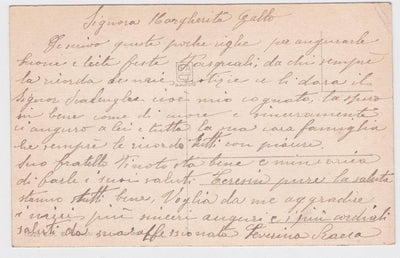 Signora Margherita Gallo
Le scrivo queste poche righe per augurarle
buone e liete feste Pasquali, da chi sempre
la ricorda le mie notizie ce li dara il
Signor cioè mio cognato, la spero
in bene come di cuore e sinceramente
ci auguro a lei e tutta la sua cara famiglia
che sempre le ricordo tutti con piacere.
Suo fratello sta bene e m'incarica
di farle i suoi saluti Teresin pure la saluta
stanno tutti bene, Voglia da me aggradire
i miei più sinceri auguri e i più cordiali
saluti da sua affezionata Severina